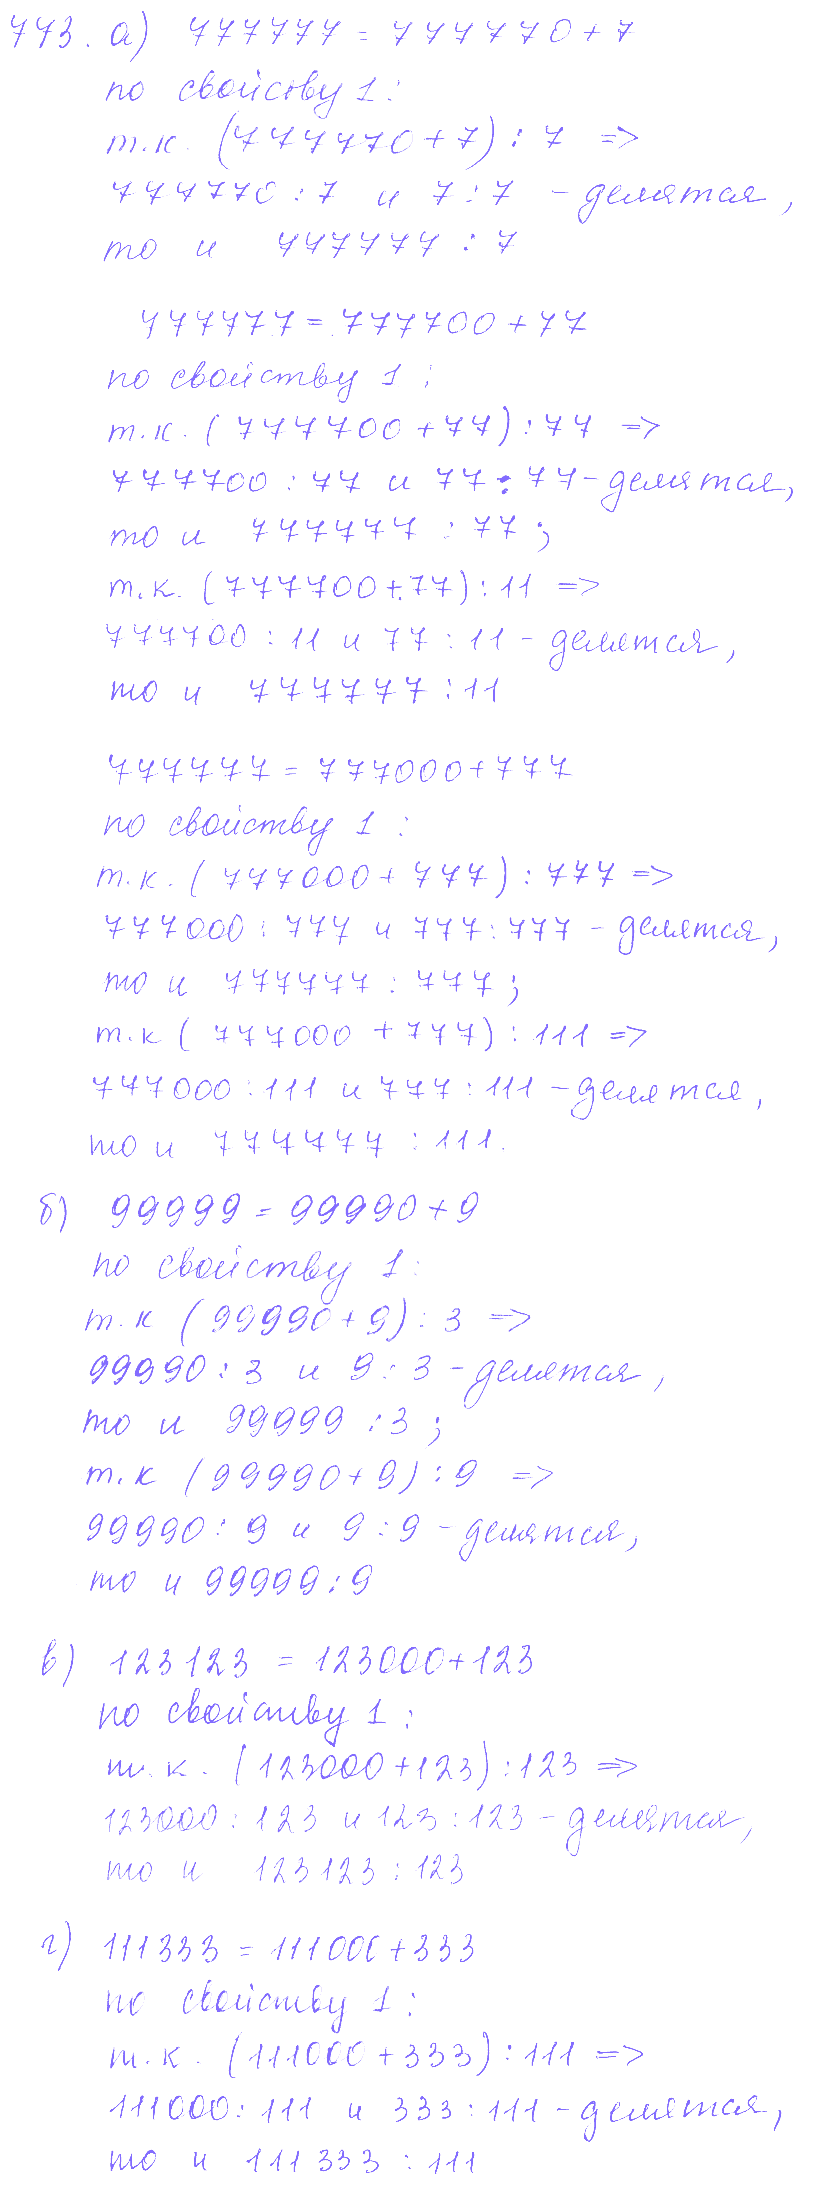 773. а) 777777 = 777770 + 7
по свойству 1:
т.к. (777770 + 7) : 7 =>
777770 : 7 и 7 : 7 - делятся,
то и 777777 : 7
777777 = 777700 + 77
по свойству 1 :
т.к. (777700 + 77) : 77 =>
777700 : 77 и 77 : 77 - делятся,
то и 777777 : 77 ;
т.к. (777700 + 77) : 11 =>
777700 : 11 и 77 : 11 - делятся,
то и 777777 : 11
777777 = 777000 + 777
по свойству 1 :
т.к. (777000 + 777) : 777 =>
777000 : 777 и 777 : 777 - делятся,
то и 777777 : 777 ;
т.к (777000 + 777) : 111 =>
777000 : 111 и 777 : 111 - делятся,
то и 777777 : 111.
б) 99999 = 99990 + 9
по свойству 1 :
т.к (99990 + 9) : 3 =>
99990 : 3 и 9 : 3 - делятся,
то и 99999 : 3 ;
т.к (99990 + 9) : 9 =>
99990 : 9 и 9 : 9 - делятся,
то и 99999 : 9
в) 123123 = 123000 + 123
по свойству 1 :
т.к. (123000 + 123) : 123 =>
123000 : 123 и 123 : 123 - делятся,
то и 123123 : 123
г) 111333 = 111000 + 333
по свойству 1 :
т.к. (111000 + 333) : 111 =>
111000 : 111 и 333 : 111 - делятся,
то и 111333 : 111